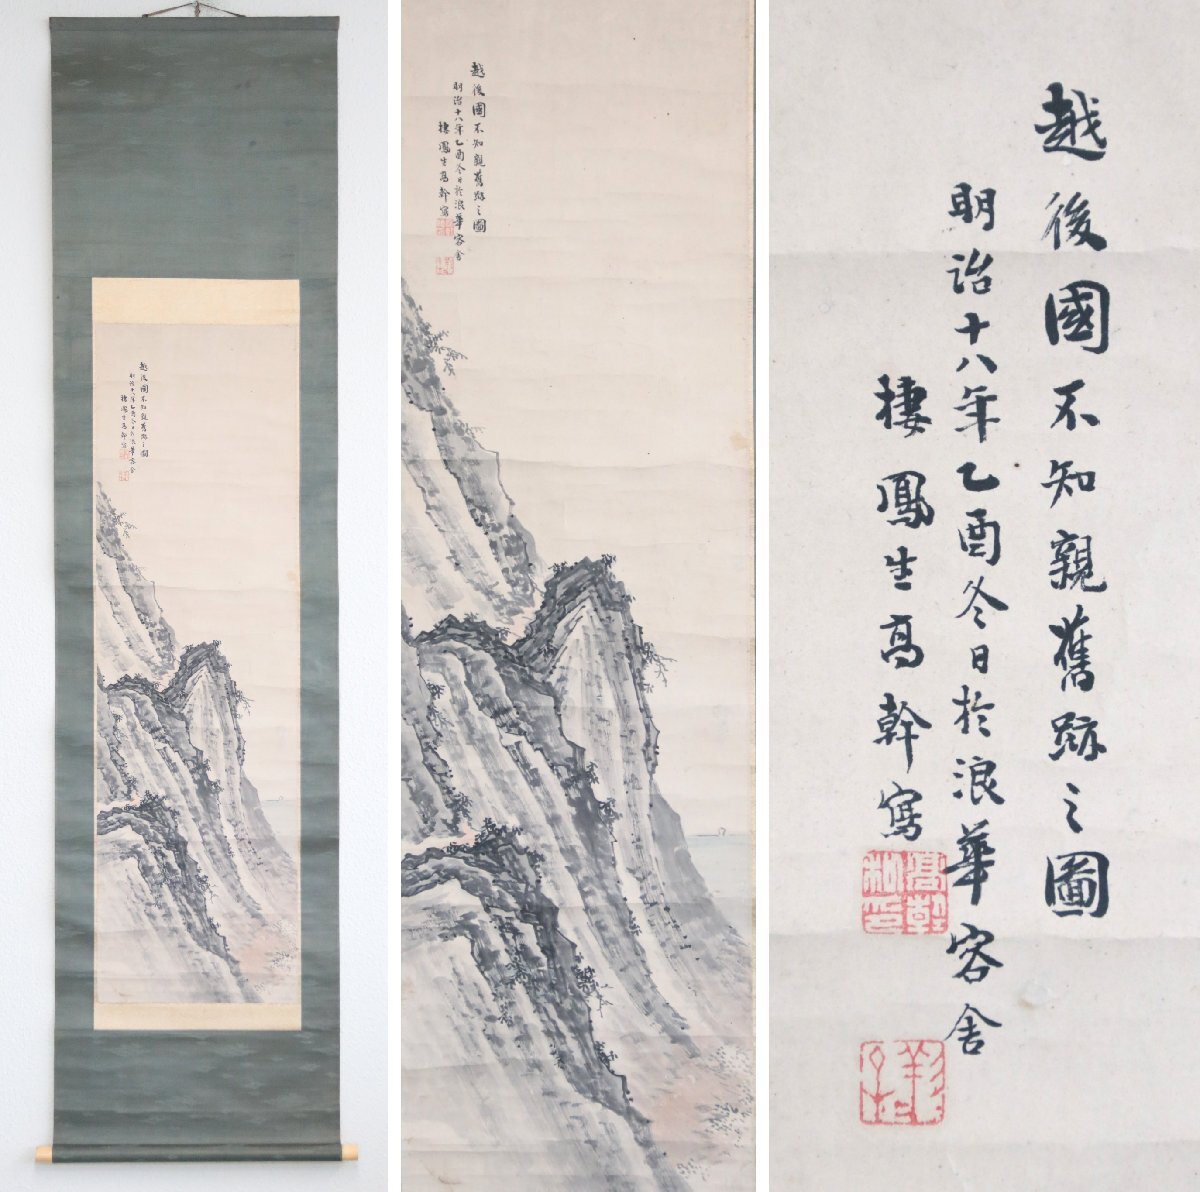 越後國不知親舊跡之圖
明治十八年乙酉冬日於浪華客舎
棲鳳生高幹寫